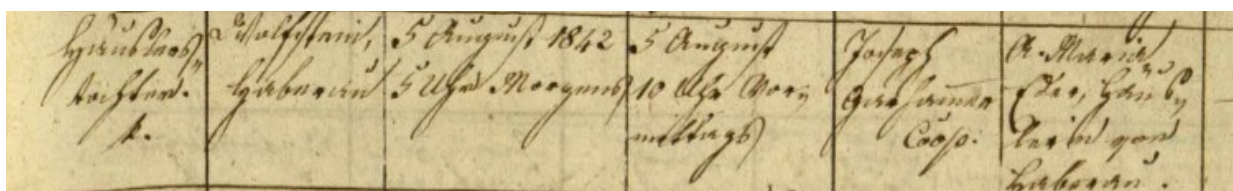 Häuslers-
tochter.
k.
Wolfstein,
Haberau
5 August 1842
5 Uhr Morgens
5 August
10 Uhr Vor-
mittags
Joseph
Garhammer
Coop.
A. Maria
Eder, Häus-
lerin von
Haberau.